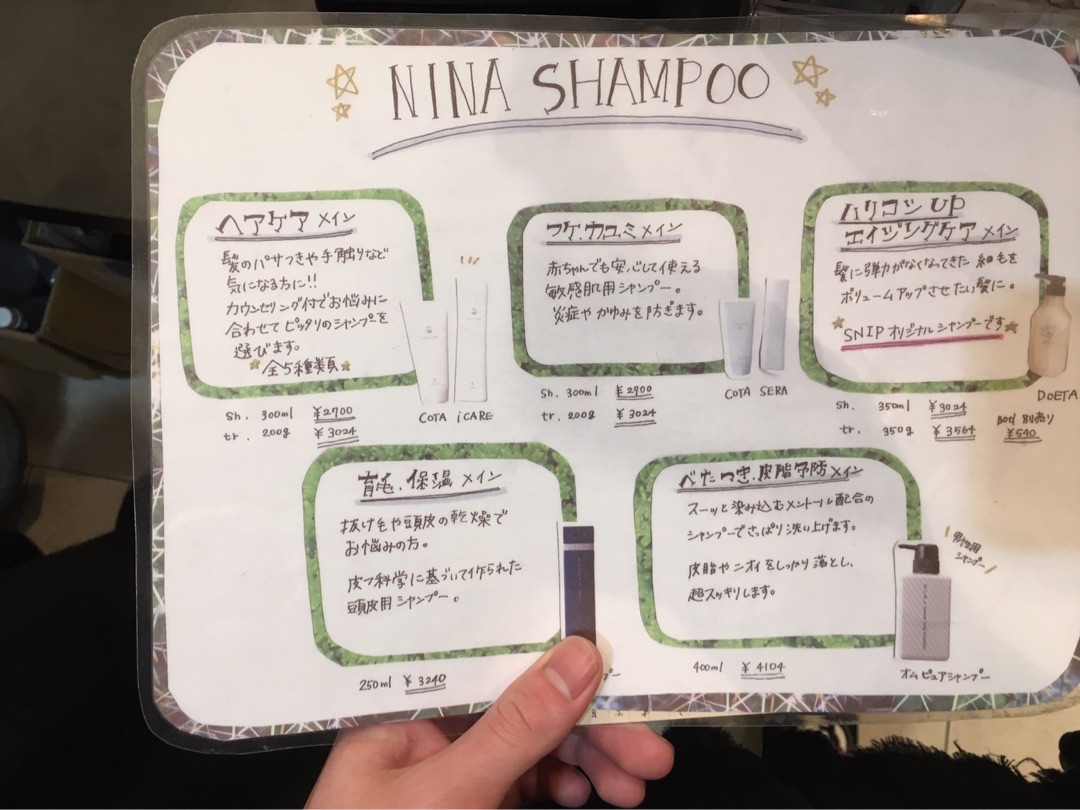 NINA SHAMPOO
ヘアケア メイン
髪のパサつきや手触りなど
気になる方に!!
カウンセリング付でお悩みに
合わせてピッタリのシャンプーを
選びます。
全5種類
sh. 300ml ¥2700
tr. 200g ¥3024
COTA iCARE
フケ、カユミメイン
赤ちゃんでも安心して使える
敏感肌用シャンプー。
炎症やかゆみを防ぎます。
sh. 300ml ¥2700
tr. 200g ¥3024
COTA SERA
ハリコシ UP
エイジングケア メイン
髪に弾力がなくなってきた細毛を
ボリュームアップさせたい髪に。
SNIP オリジナルシャンプーです
sh. 350ml ¥3024
tr. 350g ¥3564
別売り
¥540
DOETA
育毛、保湿 メイン
抜け毛や頭皮の乾燥で
お悩みの方。
皮フ科学に基づいて作られた
頭皮用シャンプー。
250ml ¥3240
プー
べたつき、皮脂予防メイン
スーッと染み込むメントール配合の
シャンプーでさっぱり洗い上げます。
皮脂やニオイをしっかり落とし、
超スッキリします。
男性用
シャンプー
400ml ¥4104
オム ピュアシャンプー